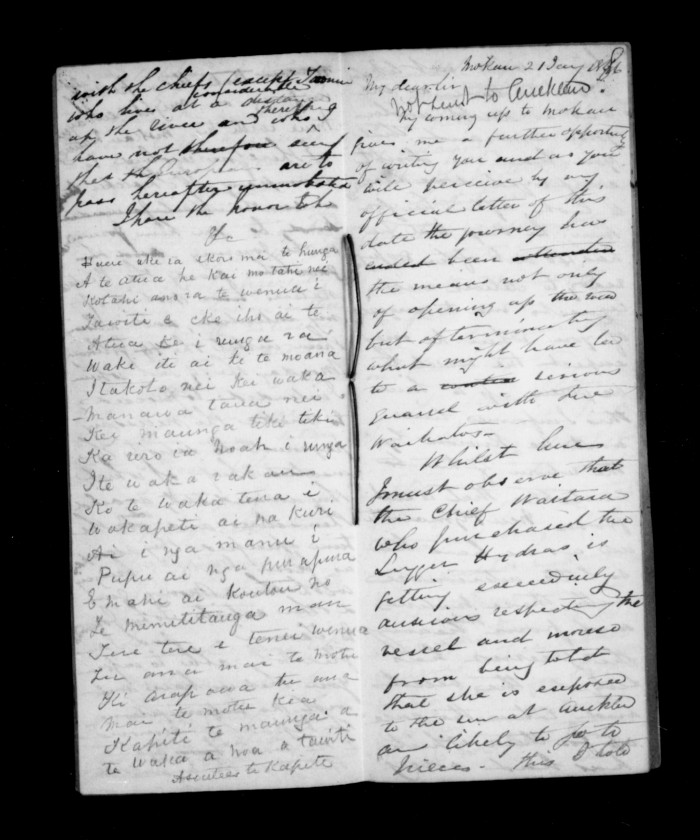 with the chiefs (except Taonui
who live at a considerable distance
up the river and who I
have not therefore seen
that the Europeans are to
pass hereafter unmolested
I have the honor to be
&c
Huri ake ra ikore mai te hunga
A te atua he kai motahi nei
Kotahi ano ra te wenua i
Tawiti e eke iho ai te
Atua te i runga ra
Waka iti ai ki te moana
Itakoto nei kei waka
Manawa taua nei
Kei maunga tiki tiki
Ka iro ia Noah i runga
Ite waka rakau
Ko te waka tena i
Wakapeti ai na kuri
Ai i nga manu i
Pupu ai nga purapura
E mahi ai koutou no
Te mimititanga mau
Tere tere i tenei wenua
mai te motu kea
Kapiti te maunga a
te waka a Noa a tawiti
te Kapite
Mokau 21 Jany 1846
My dear Sir
Not sent to Auckland.
My coming up to Mokau
gives me a further opportunity
of writing you and as you
will perceive by my
official letter of this
date the journey has
ended been attended
the means not only
of opening up the road
but of terminating
what might have led
to a serious
quarrel with the
Waikatos—
Whilst here
I must observe that
the Chief Waitara
who purchased the
Lugger Hydras, is
getting exceedingly
anxious respecting the
vessel and moreso
from being told
that she is exposed
to the sun at Auckland
and likely to go to
pieces. This I told